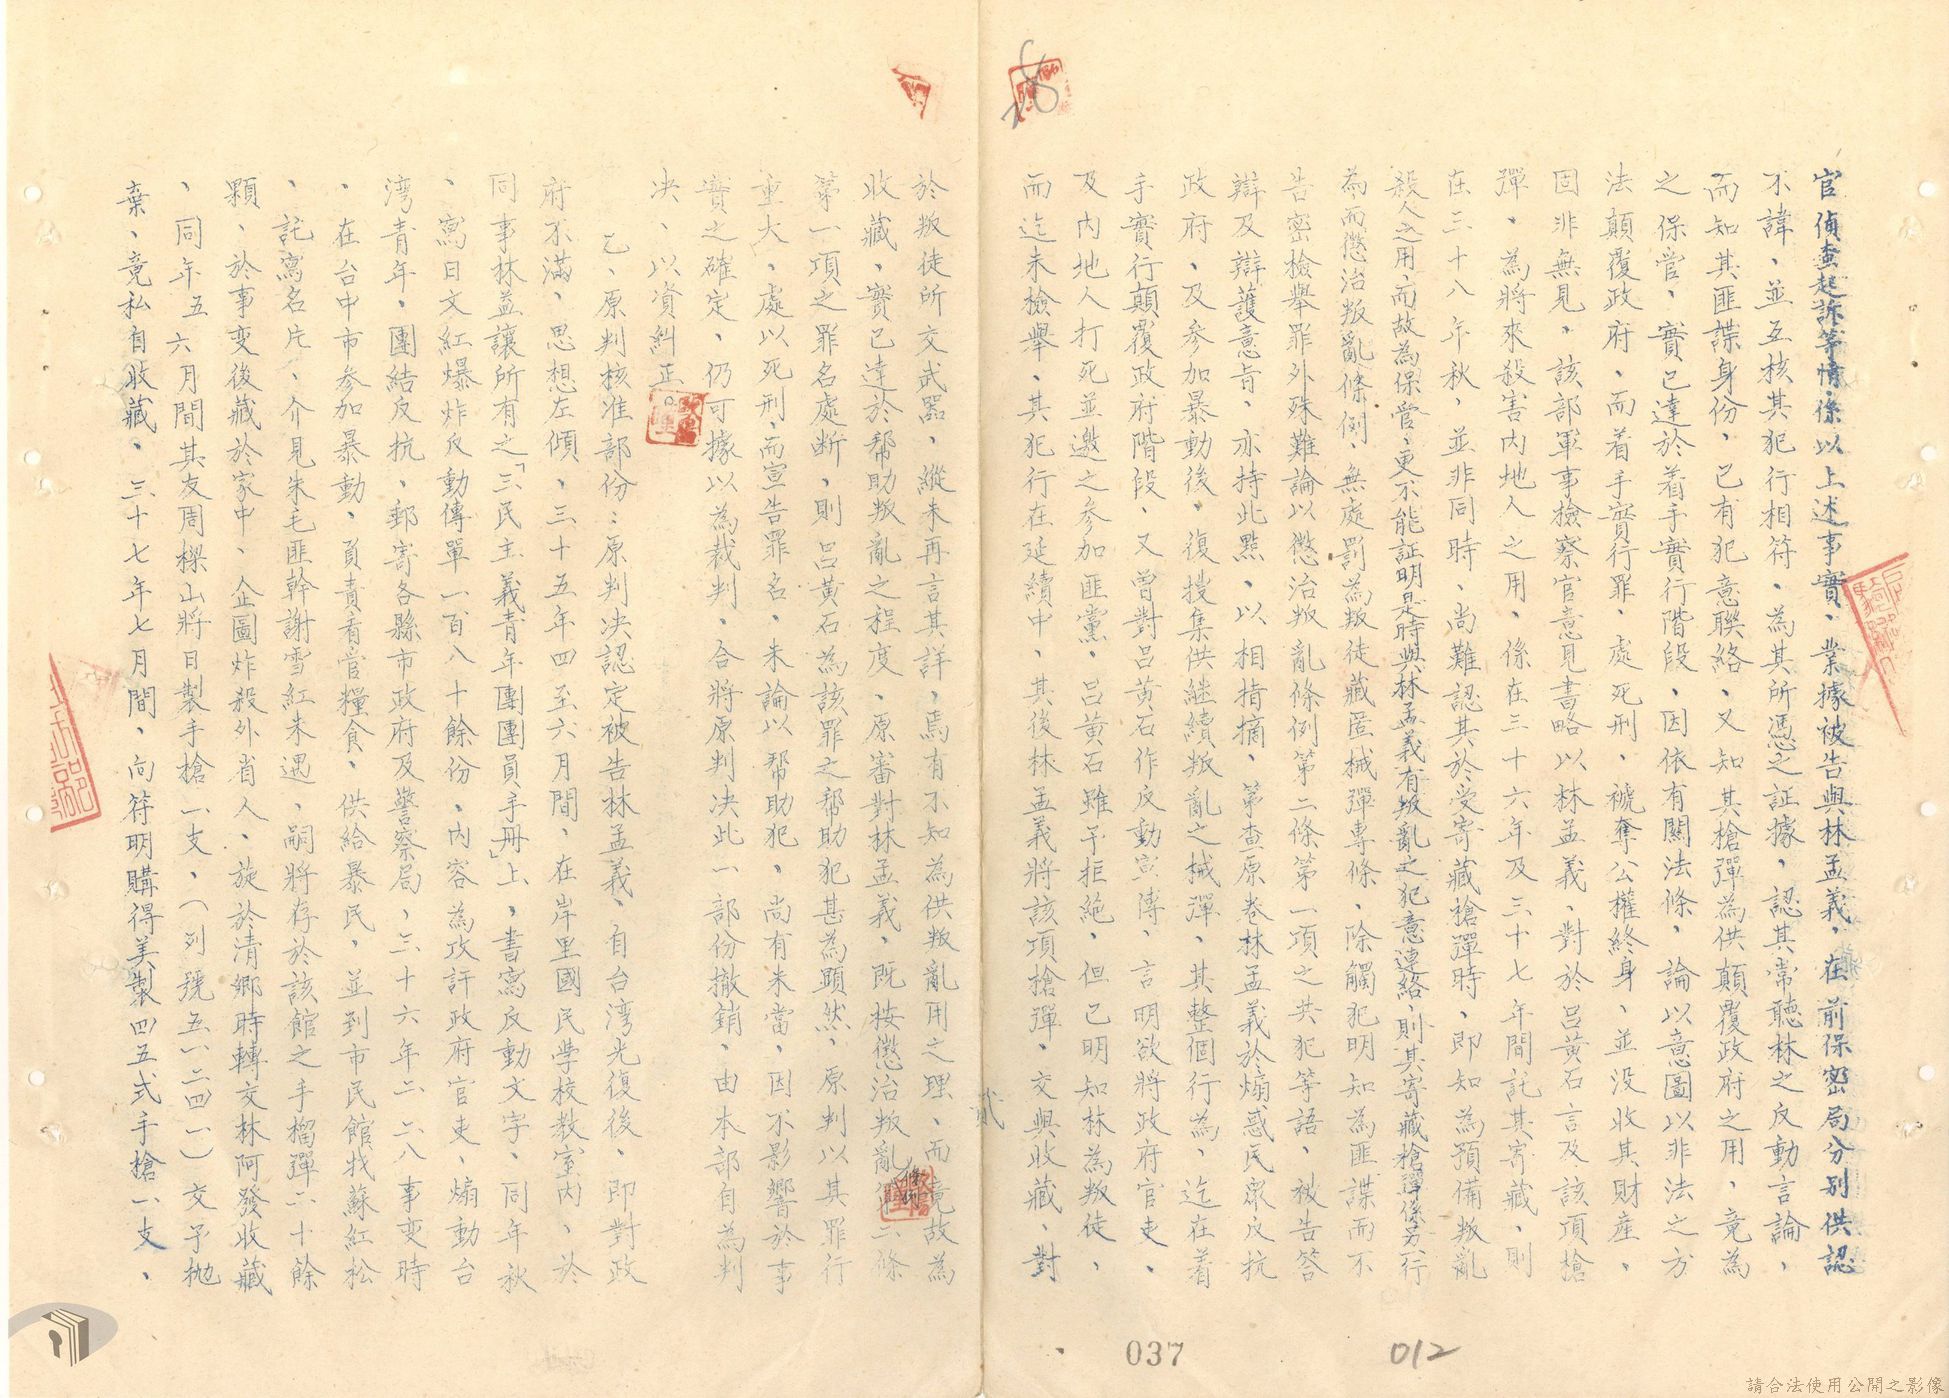 官偵查起訴等情、係以上述事實、業據被告與林孟義、在前保密局分別供認
不諱、並互核其犯行相符、為其所憑之証據、認其常聽林之反動言論、
而知其匪諜身份、已有犯意聯絡、又知其槍彈為供顛覆政府之用、竟為
之保管、實已達於着手實行階段、因依有關法條、論以意圖以非法之方
法顛覆政府、而着手實行罪、處死刑、褫奪公權終身、並没收其財產、
固非無見、該部軍事檢察官意見書略以林孟義、對於呂黃石言及該項槍
彈、為將來殺害內地人之用、係在三十六年及三十七年間託其寄藏、則
在三十八年秋、並非同時、尚難認其於受寄藏槍彈時、即知為預備叛亂
殺人之用、而故為保管、更不能証明是時與林孟義有叛亂之犯意連絡、則其寄藏槍彈係另一行
為、而懲治叛亂條例、無處罰為叛徒藏匿械彈專條、除觸犯明知為匪諜而不
告密檢舉罪外殊難論以懲治叛亂條例第二條第一項之共犯等語、被告答
辯及辯護意旨、亦持此點、以相指摘、第查原卷林孟義於煽惑民眾反抗
政府、及參加暴動後、復搜集供繼續叛亂之械彈、其整個行為、迄在着
手實行顛覆政府階段、又曾對呂黃石作反動宣傳、言明欲將政府官吏、
及內地人打死並邀之參加匪黨、呂黃石雖予拒絕、但已明知林為叛徒、
而迄未檢舉、其犯行在延續中、其後林孟義將該項槍彈、交與收藏、對
於叛徒所交武器、縱未再言其詳、焉有不知為供叛亂用之理、而竟故為
收藏、實已達於幫助叛亂之程度、原審對林孟義、既按懲治叛亂條例二條
第一項之罪名處斷、則呂黃石為該罪之幫助犯甚為顯然、原判以其罪行
重大、處以死刑、而宣告罪名、未論以幫助犯、尚有未當、因不影響於事
實之確定、仍可據以為裁判、合將原判決此一部份撤銷、由本部自為判
決、以資糾正。
乙、原判核准部份：原判決認定被告林孟義、自台湾光復後、即對政
府不滿、思想左傾、三十五年四至六月間、在岸里國民學校教室內、於
同事林益讓所有之「三民主義青年團團員手冊」上、書寫反動文字、同年秋
、寫日文紅爆炸反動傳單一百八十餘份、內容為攻訐政府官吏、煽動台
湾青年、團結反抗、郵寄各縣市政府及警察局、三十六年二二八事変時
、在台中市參加暴動、負責看管糧食、供給暴民、並到市民館找蘇紅松
、託寫名片、介見朱毛匪幹謝雪紅未遇、嗣將存於該館之手榴彈二十餘
顆、於事変後藏於家中、企圖炸殺外省人、旋於清鄉時轉交林阿發收藏
、同年五六月間其友周樑山將日製手槍一支、（列號五一二四一）交予拋
棄、竟私自收藏、三十七年七月間、向符明購得美製四五式手槍一支、
貳
037
012
請合法使用公開之影像